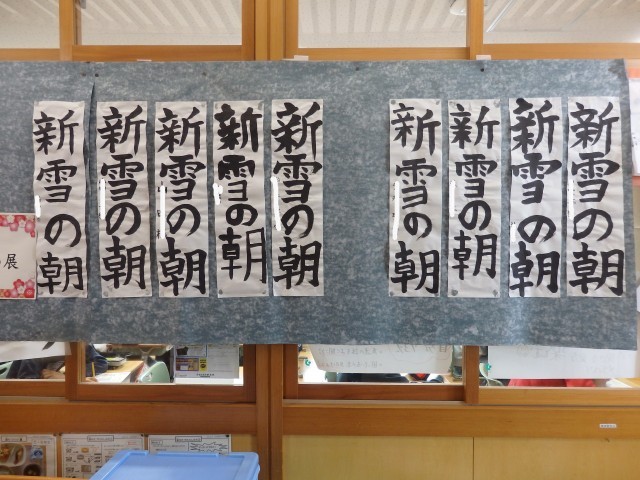 新雪の朝
新雪の朝
新雪の朝
新雪の朝
新雪の朝
新雪の朝
新雪の朝
新雪の朝
新雪の朝
展